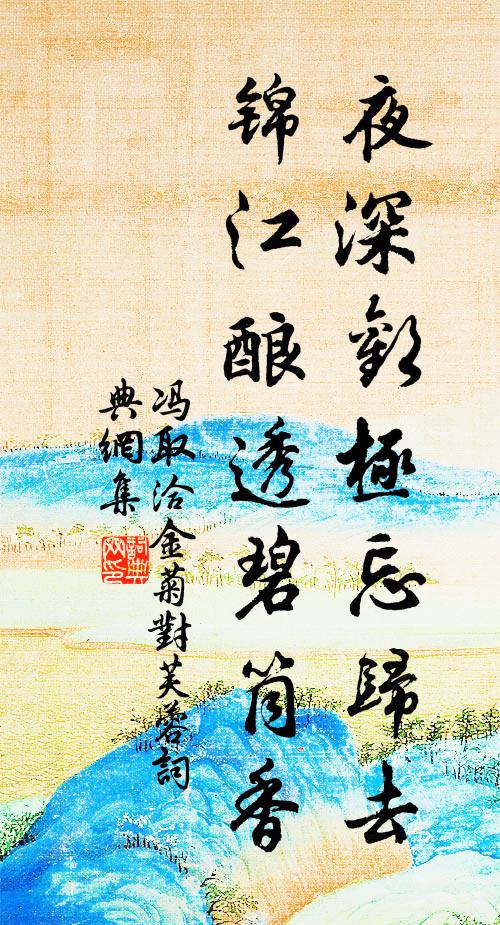 夜深歡極忘歸去
锦江酿透碧筒香
冯取洽金菊對芙蓉詞
典網集